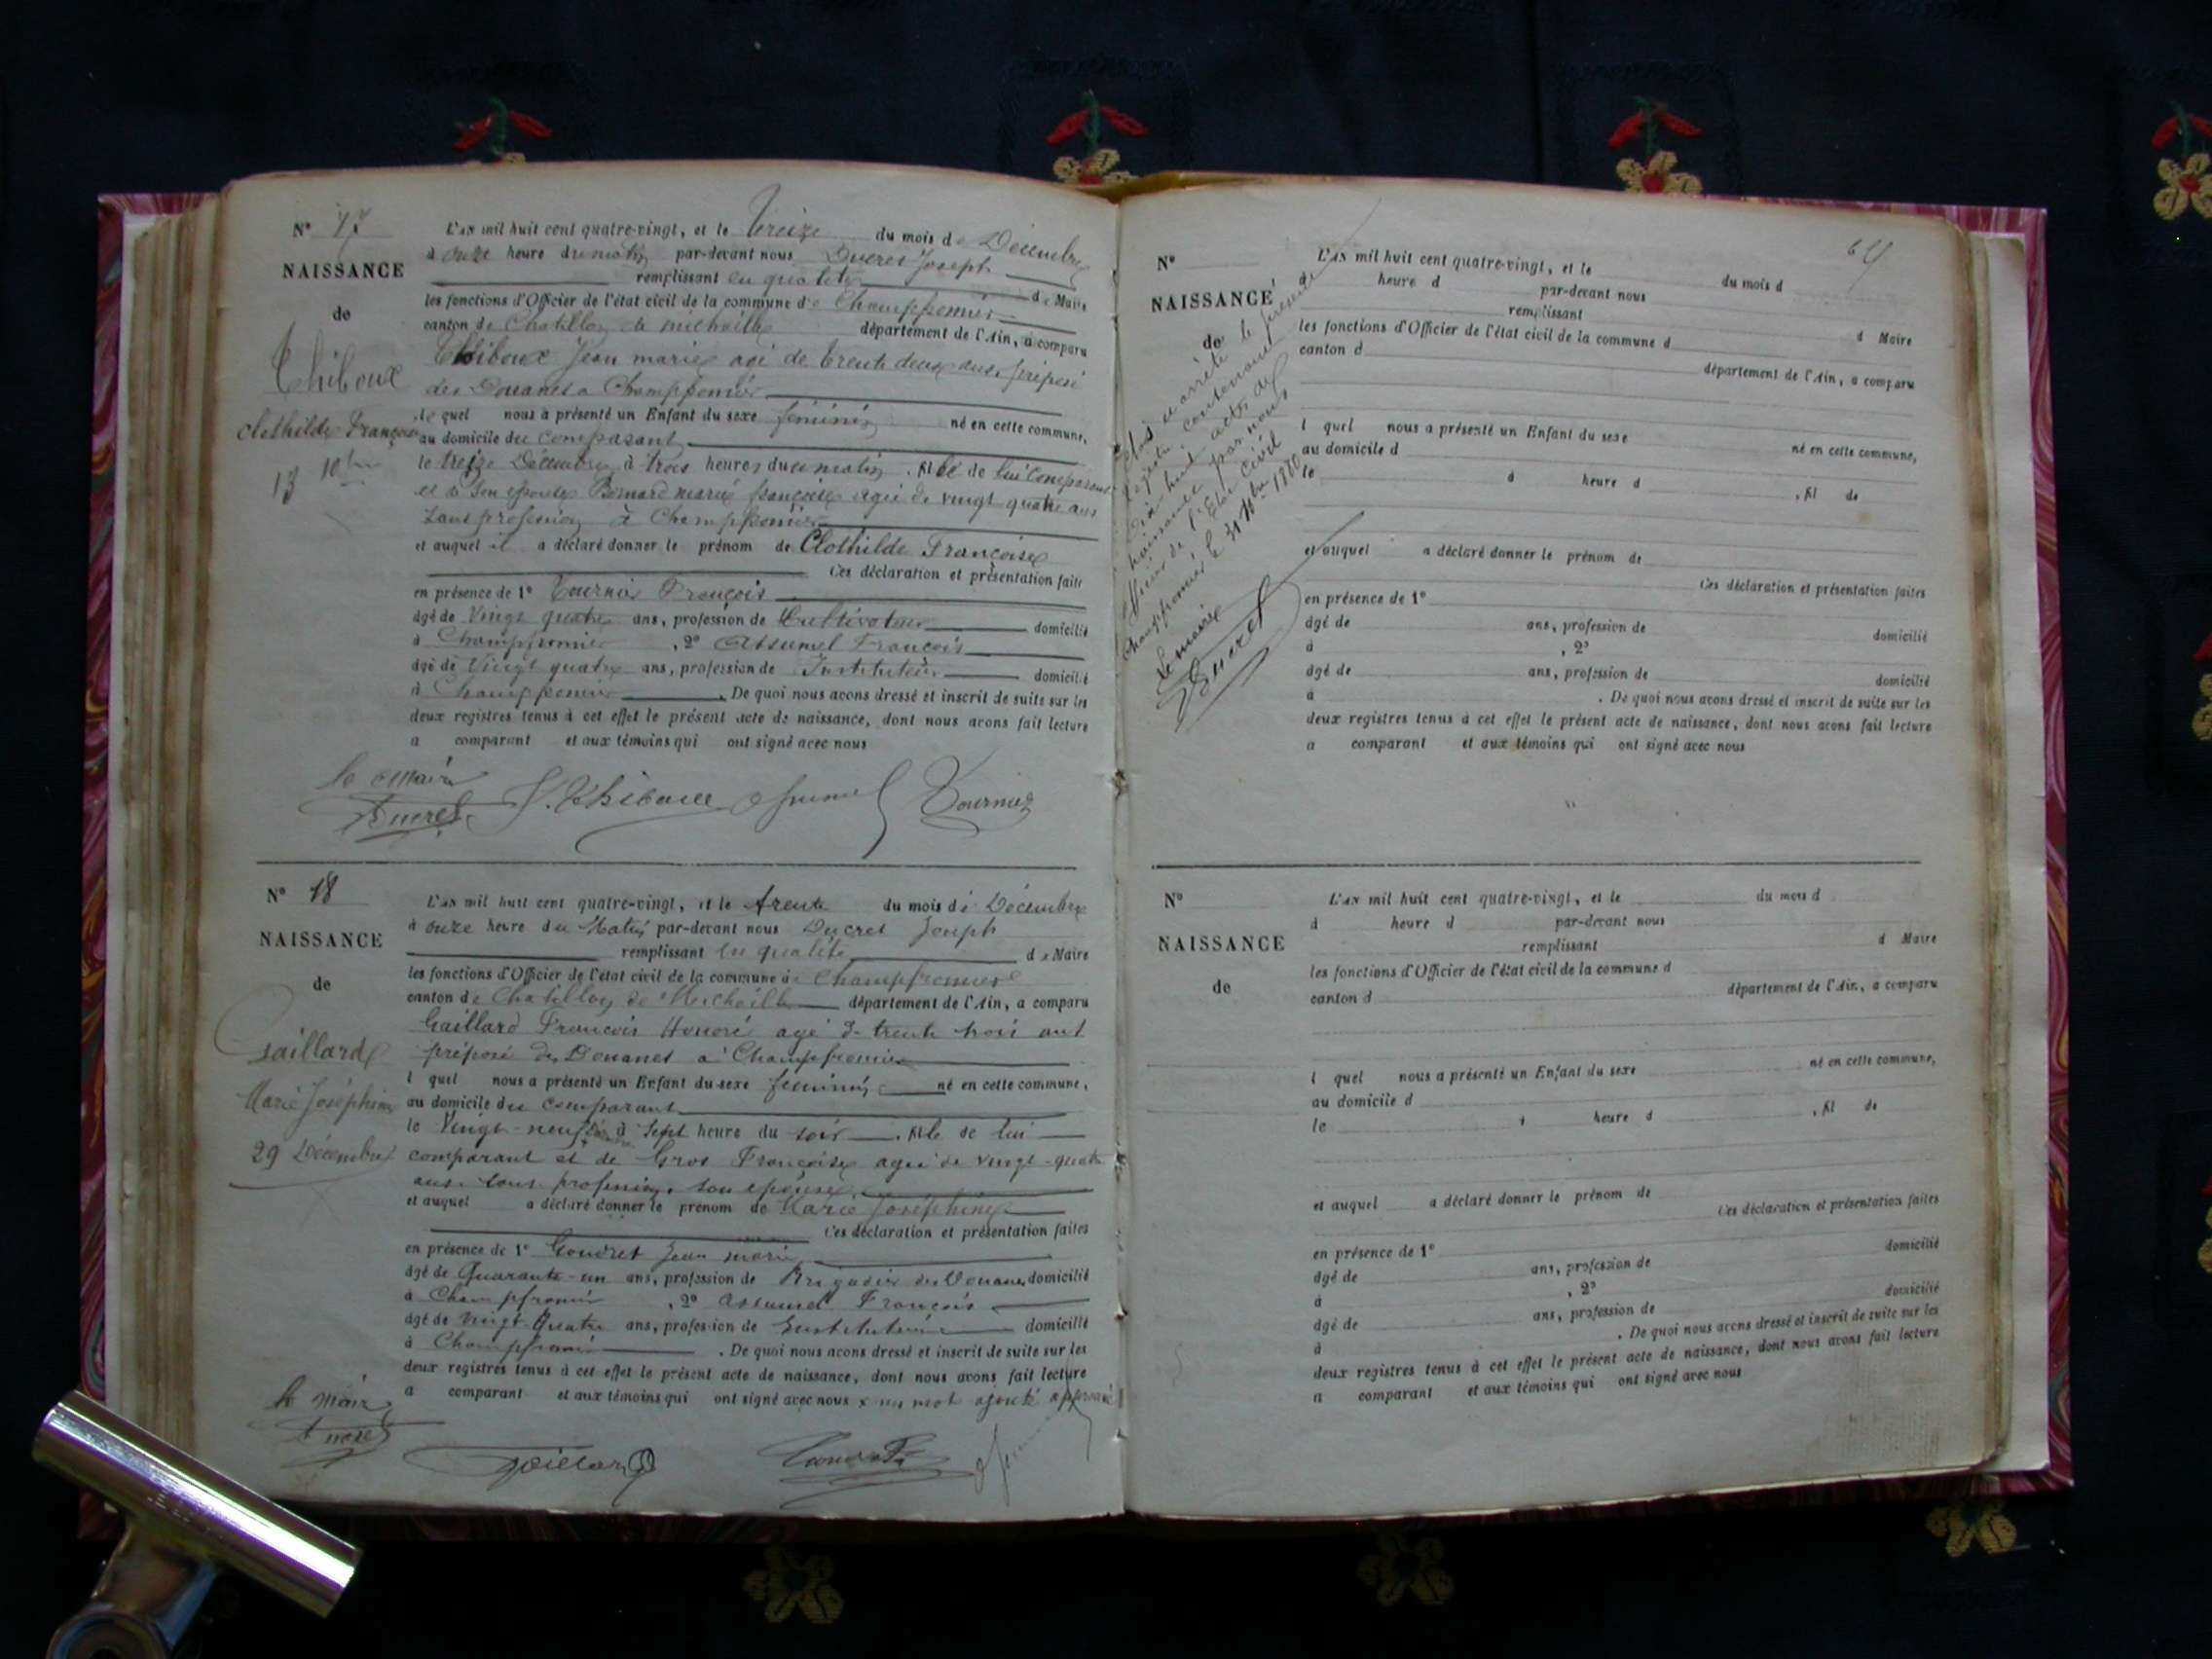 N° 17
NAISSANCE
de
Thiboux
Clothilde Françoise
13 10bre
L'an mil huit cent quatre-vingt, et le treize du mois de Décembre
à onze heure du matin par-devant nous Ducret Joseph
remplissant en qualité de Maire
les fonctions d'Officier de l'état civil de la commune de Champfromier
canton de Chatillon de michaille département de l'Ain, a comparu
Thiboux Jean marie agé de trente deux ans, préposé
des Douanes a Champfromier
le quel nous a présenté un Enfant du sexe féminin né en cette commune,
au domicile du comparant
le treize Décembre à trois heures du matin, fille de lui comparant
et de son épouse Bornard marie françoise agée de vingt quatre ans
sans profession à Champfromier
et auquel il a déclaré donner le prénom de Clothilde Françoise
Ces déclaration et présentation faite
en présence de 1° Tournier François
âgé de Vingt quatre ans, profession de Cultivateur domicilié
à Champfromier, 2° Assumel François
âgé de Vingt quatre ans, profession de Instituteur domicilié
à Champfromier. De quoi nous avons dressé et inscrit de suite sur les
deux registres tenus à cet effet le présent acte de naissance, dont nous avons fait lecture
a comparant et aux témoins qui ont signé avec nous
le maire
Ducret J. Thiboux Assumel Tournier
N° 18
NAISSANCE
de
Gaillard
Marie Joséphine
29 Décembre
L'an mil huit cent quatre-vingt, et le trente du mois de Décembre
à onze heure du Matin par-devant nous Ducret Joseph
remplissant en qualité de Maire
les fonctions d'Officier de l'état civil de la commune de Champfromier
canton de Chatillon de Michaille département de l'Ain, a comparu
Gaillard François Honoré agé de trente trois ans
préposé des Douanes a Champfromier
l quel nous a présenté un Enfant du sexe féminin né en cette commune,
au domicile du comparant
le Vingt-neuf à Sept heure du soir, fille de lui
comparant et de Gros Françoise agée de vingt-quatre
ans, sans profession, son épouse,
et auquel a déclaré donner le prénom de Marie Joséphine
Ces déclaration et présentation faites
en présence de 1° Goudret Jean marie
âgé de Quarante-un ans, profession de Brigadier des Douanes domicilié
à Champfromier, 2° Assumel François
âgé de Vingt-Quatre ans, profession de Instituteur domicilié
à Champfromier. De quoi nous avons dressé et inscrit de suite sur les
deux registres tenus à cet effet le présent acte de naissance, dont nous avons fait lecture
a comparant et aux témoins qui ont signé avec nous x un mot ajouté approuvé
le maire
Ducret Gaillard
Clos et arrêté le présent
registre contenant
dix huit actes de
naissance par nous
officier de l'Etat Civil
Champfromier le 31 10bre 1880
Le maire
Ducret
N°
NAISSANCE
de
L'an mil huit cent quatre-vingt, et le du mois d
à heure d par-devant nous
remplissant d Maire
les fonctions d'Officier de l'état civil de la commune d
canton d département de l'Ain, a comparu
l quel nous a présenté un Enfant du sexe né en cette commune,
au domicile d
le à heure d , fil de
et auquel a déclaré donner le prénom de
Ces déclaration et présentation faites
en présence de 1°
âgé de ans, profession de domicilié
à , 2°
âgé de ans, profession de domicilié
à . De quoi nous avons dressé et inscrit de suite sur les
deux registres tenus à cet effet le présent acte de naissance, dont nous avons fait lecture
a comparant et aux témoins qui ont signé avec nous
N°
NAISSANCE
de
L'an mil huit cent quatre-vingt, et le du mois d
à heure d par-devant nous
remplissant d Maire
les fonctions d'Officier de l'état civil de la commune d
canton d département de l'Ain, a comparu
l quel nous a présenté un Enfant du sexe né en cette commune,
au domicile d
le à heure d , fil de
et auquel a déclaré donner le prénom de
Ces déclaration et présentation faites
en présence de 1°
âgé de ans, profession de domicilié
à , 2°
âgé de ans, profession de domicilié
à . De quoi nous avons dressé et inscrit de suite sur les
deux registres tenus à cet effet le présent acte de naissance, dont nous avons fait lecture
a comparant et aux témoins qui ont signé avec nous